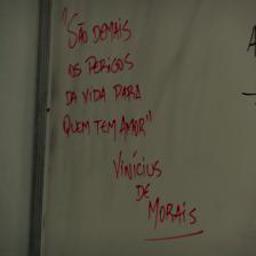 "São demais
os perigos
da vida para
quem tem amor"
Vinícius
de
Morais
A